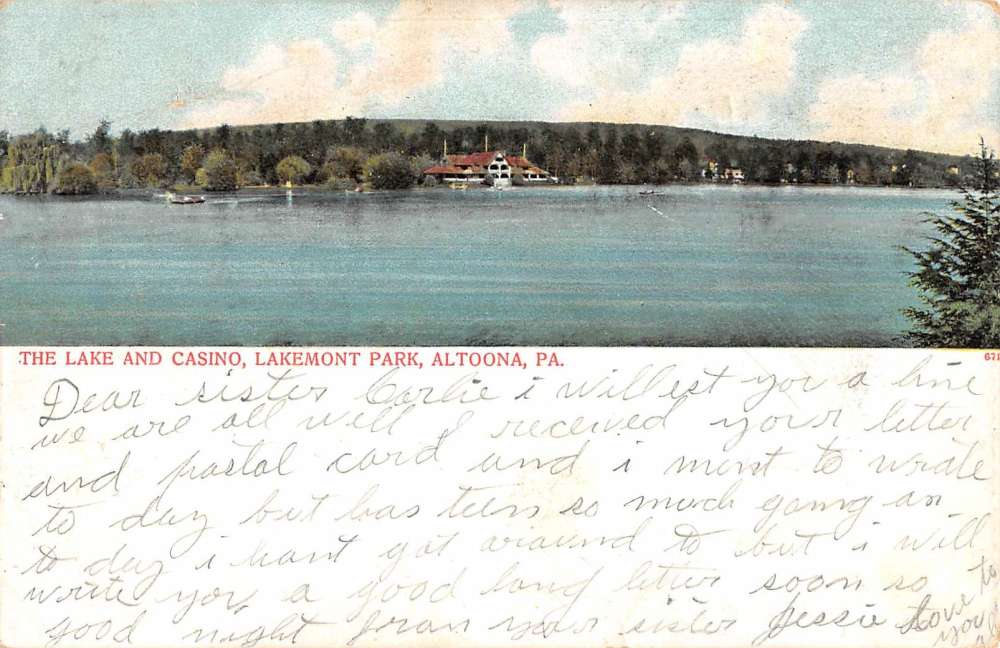 THE LAKE AND CASINO, LAKEMONT PARK, ALTOONA, PA.
671
Dear sister Carlie i will est you a line
we are all well I received your letter
and pastal card and i ment to wrate
to day but has teen so much gaing an
to day i hant gat araund to but i will
write you a good lang letter soon so
good night fram your sister Jessie
Love to
you